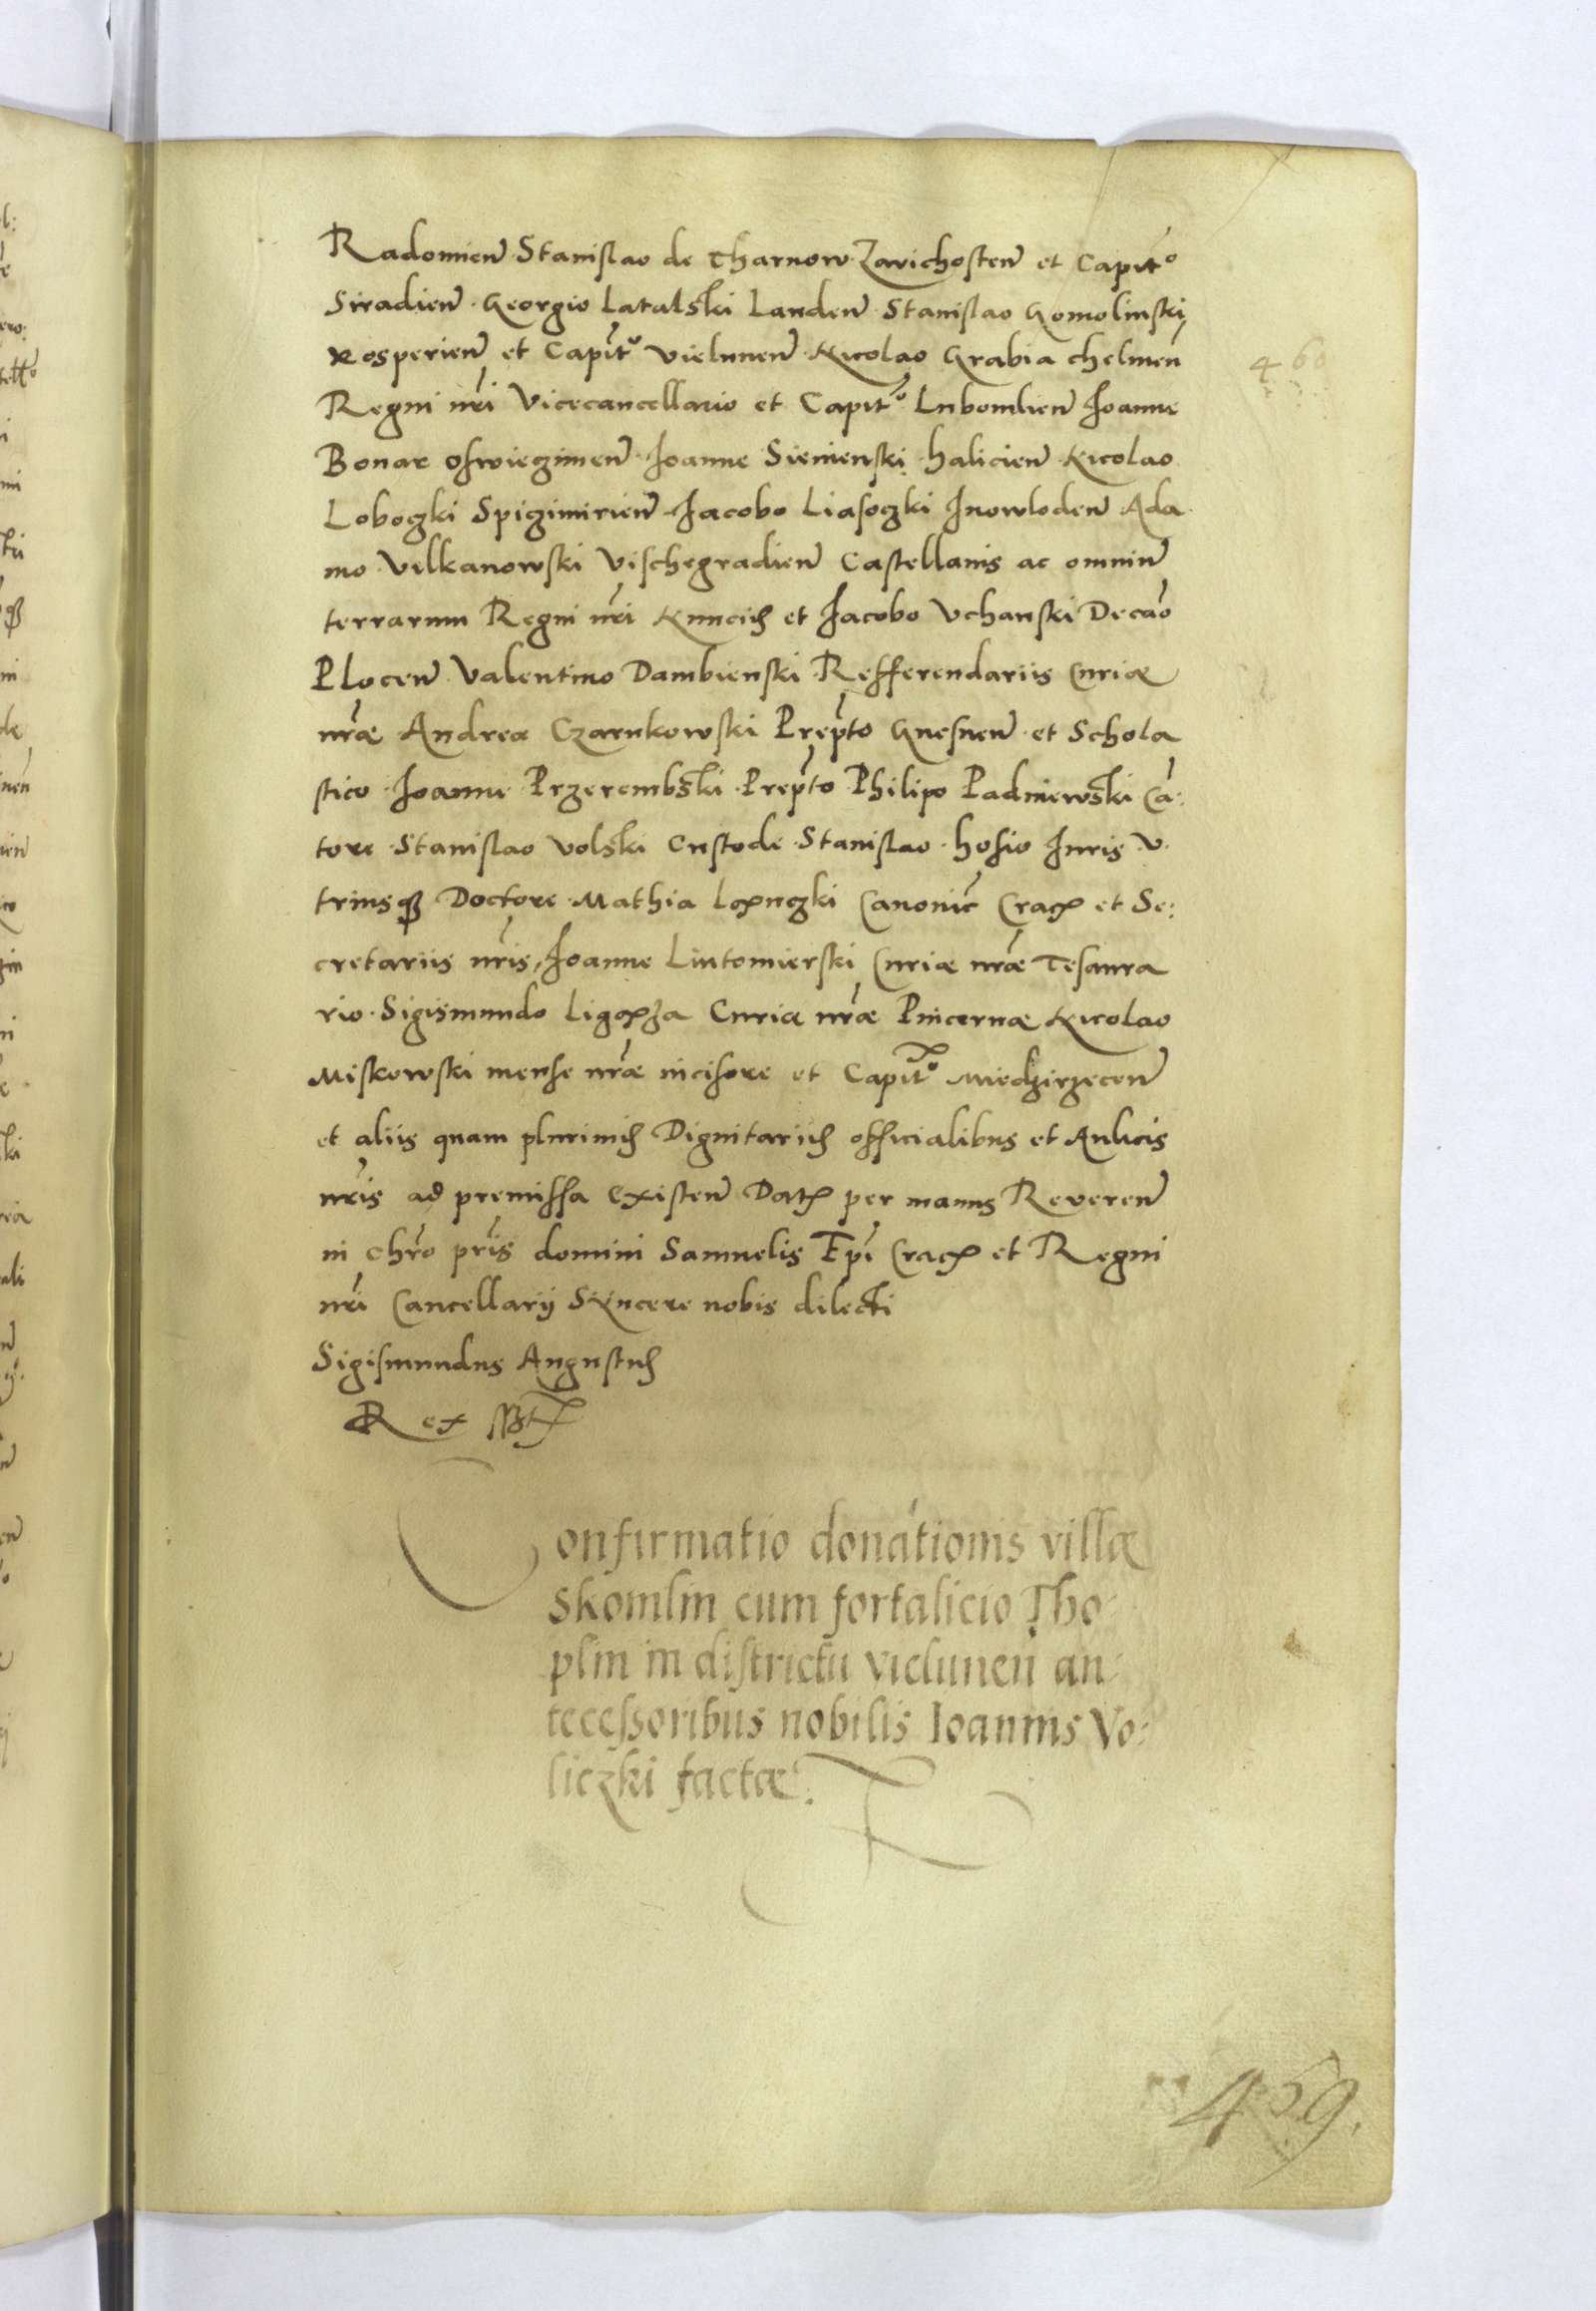 Radomien Stanislao de Tharnow Zavichosten et Capito
Siradien Georgio Latalski Landen Stanislao Gomolinski
Rosperien et Capito Vielunen Nicolao Grabia Chelmen
460
Regni nri Vicecancellario et Capito Lubomlien Joanne
Bonar Oswieczimen Joanne Sienienski Halicien Nicolao
Loboczki Spiczimirien Jacobo Liasoczki Jnowloden Ada
mo Vilkanowski Vischegradien Castellanis ac omniu
terrarum Regni nri Nunciis et Jacobo Vchanski Decao
Plocen Valentino Dambienski Refferendariis Curiæ
nræ Andrea Czarnkowski Prepto Gnesnen et Schola
stico Joanne Przerembski Prepto Philipo Padniewski Ca:
tore Stanislao Volski Custode Stanislao Hosio Juris V
triusq Doctore Mathia Canonic Crac et Se:
cretariis nris, Joanne Lutomierski Curiæ nræ Tesaura
rio Sigismundo Ligęza Curiæ nræ Pincernæ Nicolao
Miskowski mense nræ incisore et Capito Miedzirzecen
et aliis quam plurimis Dignitariis officialibus et Aulicis
nris ad premissa Existen Dat per manus Reveren
in Chro pris domini Samuelis Epi Crac et Regni
nri Cancellarij Syncere nobis dilecti
Sigismundus Augustus
Rex sst
Confirmatio donationis villæ
Skomlin cum fortalicio Tho:
plin in districtu vielunen an:
tecessoribus nobilis Ioannis Vo:
liczki factæ.
459.